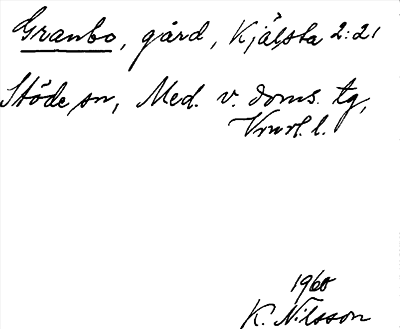 Granbo, gård, Kjälsta 2:21
Stöde sn, Med. v. doms. tg,
Vrnrl. l.
1960
K. Nilsson